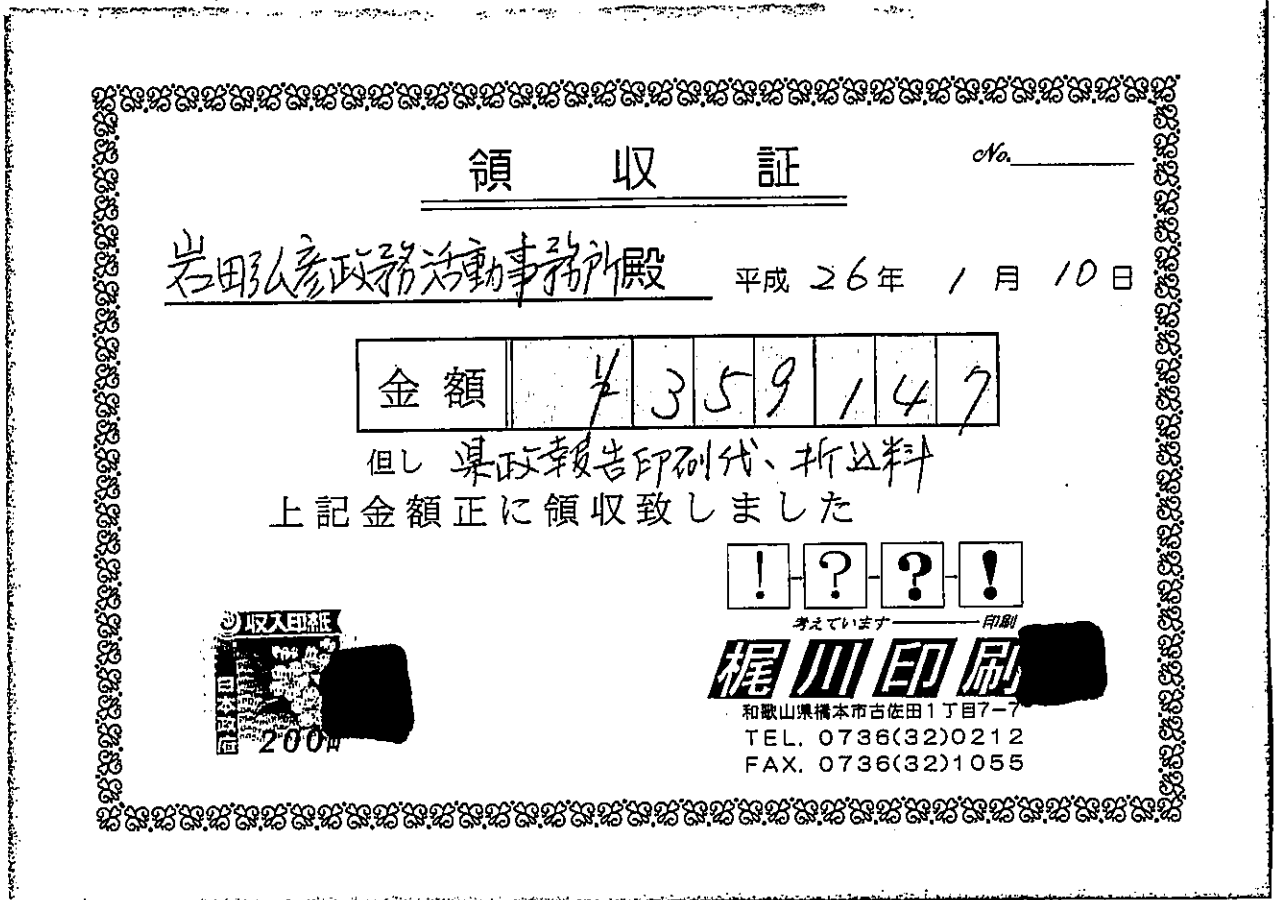 領収証
No.
岩田弘彦政務活動事務所殿
平成26年1月10日
金額 ¥359147
但し 県政報告印刷代、折込料
上記金額正に領収致しました
!-?-?-!
考えています 印刷
梶川印刷
和歌山県橋本市古佐田1丁目7-7
TEL. 0736(32)0212
FAX. 0736(32)1055
収入印紙
日本政府
200円